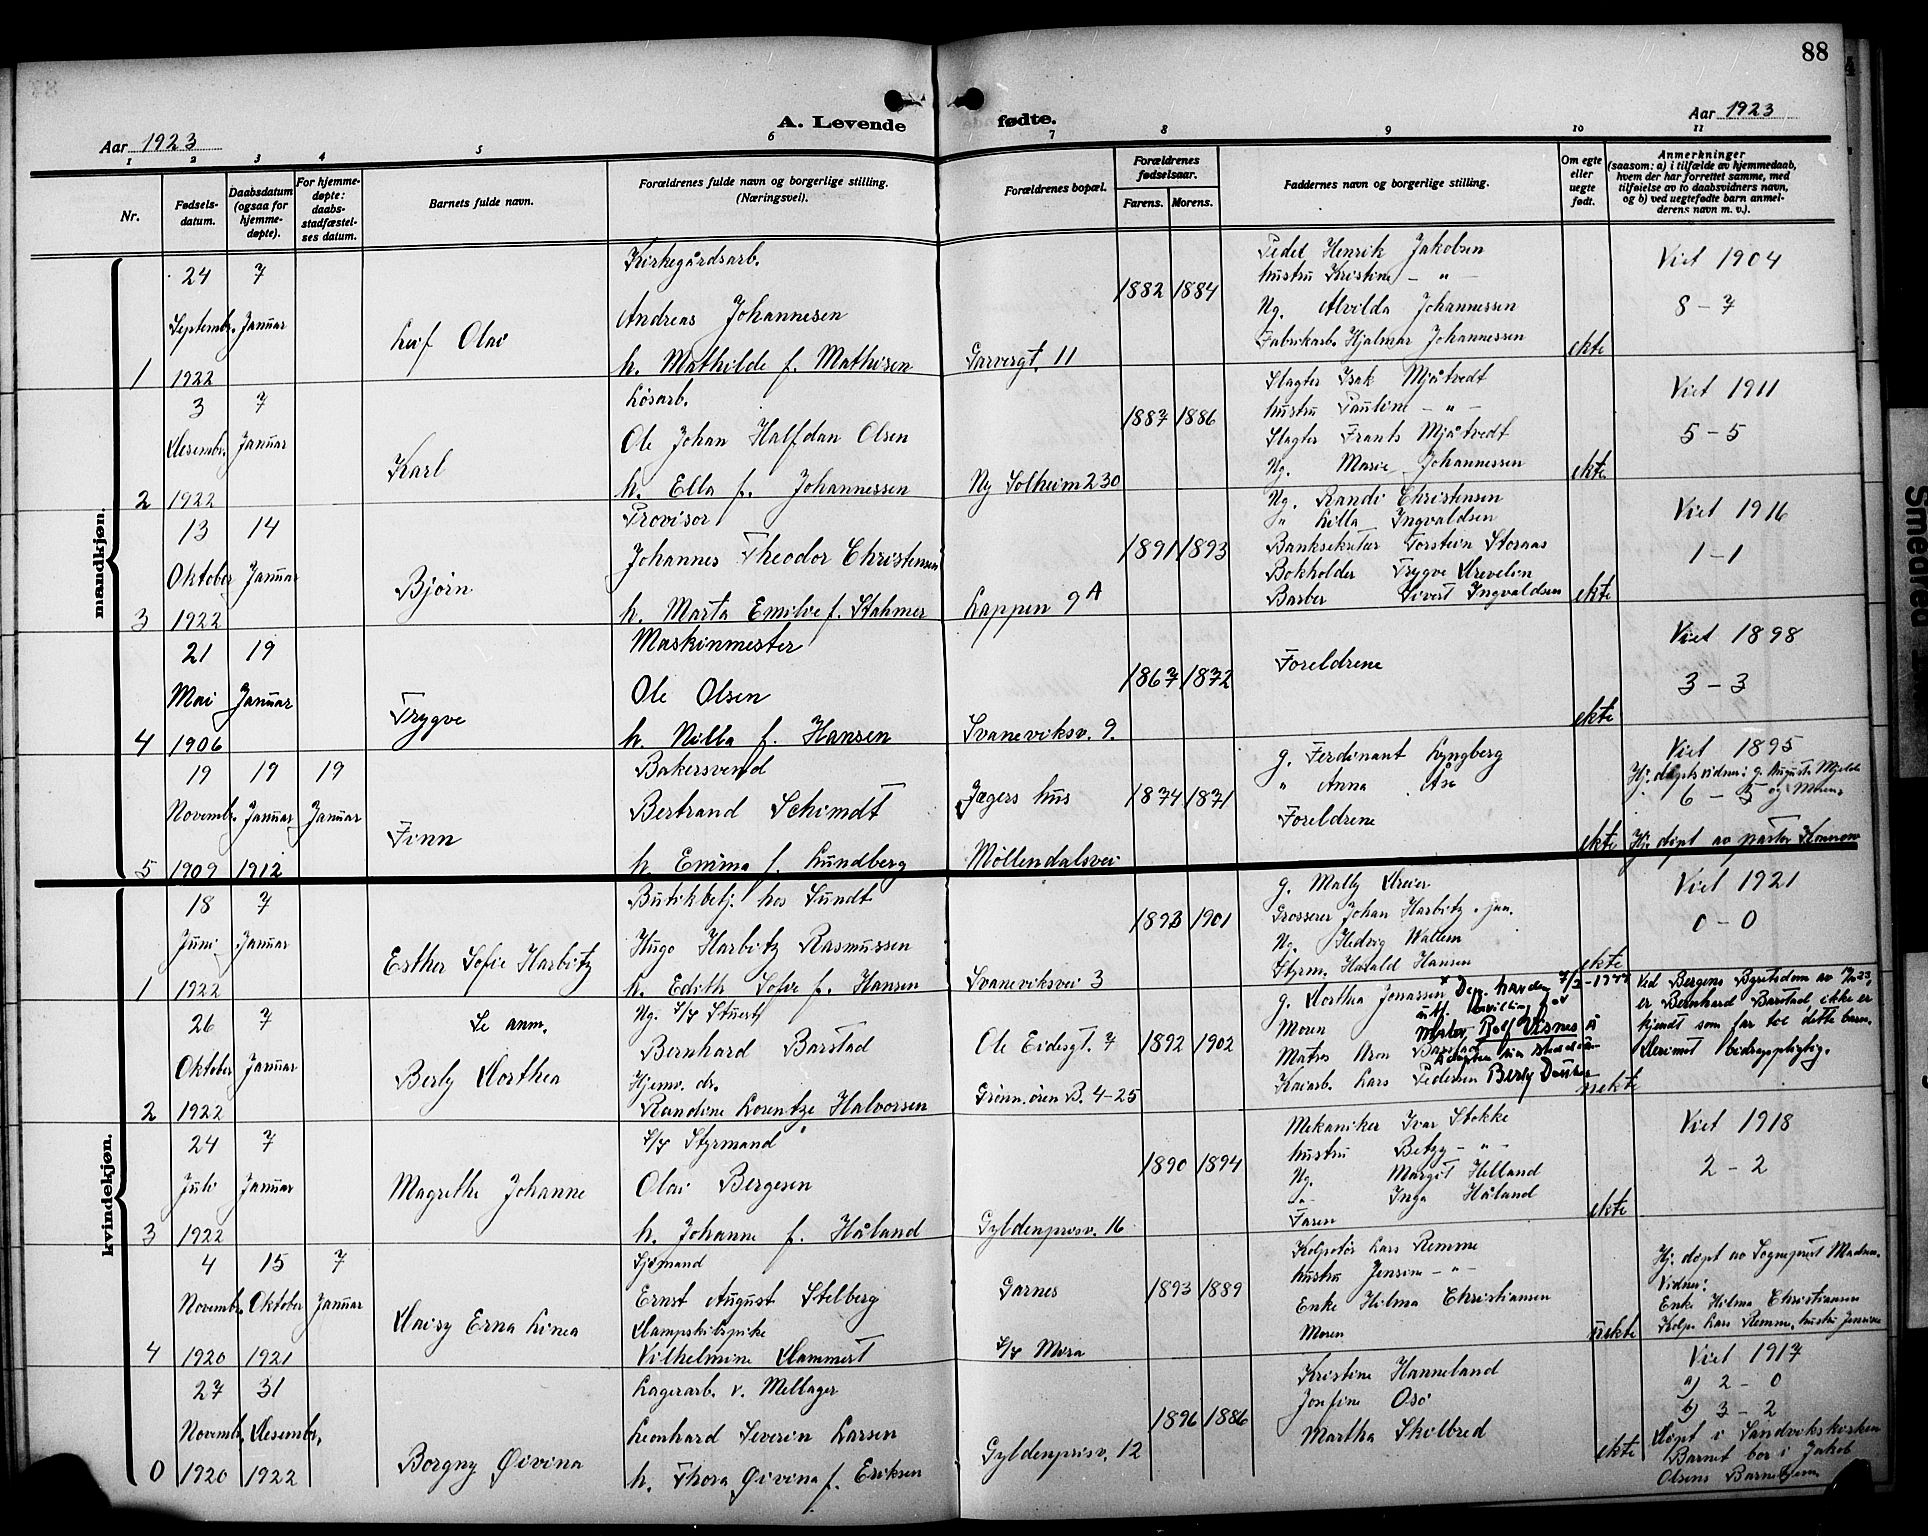 88
Aar 1923
A. Levende fødte.
Aar 1923
1 2 3 4 5 6 7 8 9 10 11
Nr.
Fødsels-
datum.
Daabsdatum
(ogsaa for
hjemme-
døpte).
For hjemme-
døpte:
daabs-
stadfæstel-
ses datum.
Barnets fulde navn.
Forældrenes fulde navn og borgerlige stilling.
(Næringsvei).
Forældrenes bopæl.
Forældrenes
fødselsaar.
Farens. Morens.
Faddernes navn og borgerlige stilling.
Om egte
eller
uegte
født.
Anmerkninger
(saasom: a) i tilfælde av hjemmedaab,
hvem der har forrettet samme, med
tilføielse av to daabsvidners navn,
og b) ved uegtefødte barn anmel-
derens navn m. v.).
mandkjøn.
1
24 Septembr. 1922
7 Januar
Leif Olai
Kirkegårdsarb.
Andreas Johannesen
h. Mathilde f. Mathisen
Garvergt. 11
1882 1884
Pedel Henrik Jakobsen
hustru Kristine - " -
Ng. Alvilda Johannessen
Fabrikarb. Hjalmar Johannessen
ekte
Viet 1904
8 - 7
2
3 Desembr. 1922
7 Januar
Karl
Løsarb.
Ole Johan Halfdan Olsen
h. Ella f. Johannessen
Ny Solheim 230
1887 1886
Slagter Isak Mjåtvedt
hustru Pauline - " -
Slagter Frants Mjåtvedt
Ng. Marie Johannessen
ekte
Viet 1911
5 - 5
3
13 Oktober 1922
14 Januar
Bjørn
Provisor
Johannes Theodor Christensen
h. Marta Emilie f. Stahmer
Lappen 9 A
1891 1893
Ng. Randi Christensen
" Lilla Ingvaldsen
Banksekretær Torstein Storaas
Bokholder Trygve Drevelin
Barber Sivert Ingvaldsen
ekte
Viet 1916
1 - 1
4
21 Mai 1906
19 Januar
Trygve
Maskinmester
Ole Olsen
h. Nilla f. Hansen
Svaneviksv. 9.
1867 1872
Foreldrene
ekte
Viet 1898
3 - 3
5
19 Novembr. 1909
19 Januar 1912
19 Januar
Finn
Bakersvend
Bertrand Schimdt
h. Emma f. Lundberg
Jægers hus
Møllendalsvei
1874 1871
g. Ferdinant Lyngberg
" Anna Ås
Foreldrene
ekte
Viet 1895
Hj. dåpsvidner: g. Augusta Mjelde
6 - 5 og Moren
Hj. døpt av pastor Konow
kvindekjøn.
1
18 Juni 1922
7 Januar
Esther Sofie Harbitz
Butikbetj. hos Sundt
Hugo Harbitz Rasmussen
h. Edith Sofie f. Hansen
Svaneviksvei 3
1893 1901
g. Mally Dreier
Grosserer Johan Harbitz jun.
Ng. Hedvig Wallem
Styrm. Harald Hansen
ekte
Viet 1921
0 - 0
2
26 Oktober 1922
7 Januar
Se anm.
Berly Dorthea
Ng. S/S Stuert
Bernhard Barstad
Hjemv. dr.
Randine Lorentze Halvorsen
Ole Eidesgt. 7
Grønn. øren B. 4-25
1892 1902
g. Dorthea Jonassen
Moren
Matros Aron Barstad
Kaiarb. Lars Pedersen
Dep. har den
bevilling for
Rolf Visnes å
Berly
uekte
Ved Bergens Byretsdom av
er Bernhard Barstad ikke er
kjendt som far til dette barn.
Derimot bidragspligtig.
3
24 Juli 1922
7 Januar
Magrethe Johanne
S/S Styrmand
Olai Bergesen
h. Johanne f. Håland
Gyldenprisv. 16
1890 1894
Mekaniker Ivar Stokke
hustru Betzy - " -
Ng. Margit Helland
" Inga Håland
Faren
ekte
Viet 1918
2 - 2
4
4 Novembr. 1920
15 Oktober 1921
7 Januar
Daisy Erna Linea
Sjømand
Ernst August Stelberg
Dampskibspike
Vilhelmine Dammert
Garnes
S/S Mira
1893 1889
Kolportør Lars Remme
hustru Jensine - " -
Enke Hilma Christiansen
Moren
uekte
Hj. døpt av Sogneprest Madsen.
Vidner:
Enke Hilma Christiansen
Kolp. Lars Remme, hustru Jensine
0
27 Novembr. 1920
31 Desembr. 1922
Borgny Øivina
Lagerarb. v. Mellager
Leonhard Severin Larsen
h. Thora Øivina f. Eriksen
Gyldenprisv. 12
1896 1886
Kristine Hanneland
Josefine Osø
Martha Skilbred
ekte
Viet 1917
a) 2 - 0
b) 3 - 2
Døpt i Sandvikskirken
Barnet bor i Jakob
Olsens Barnehjem